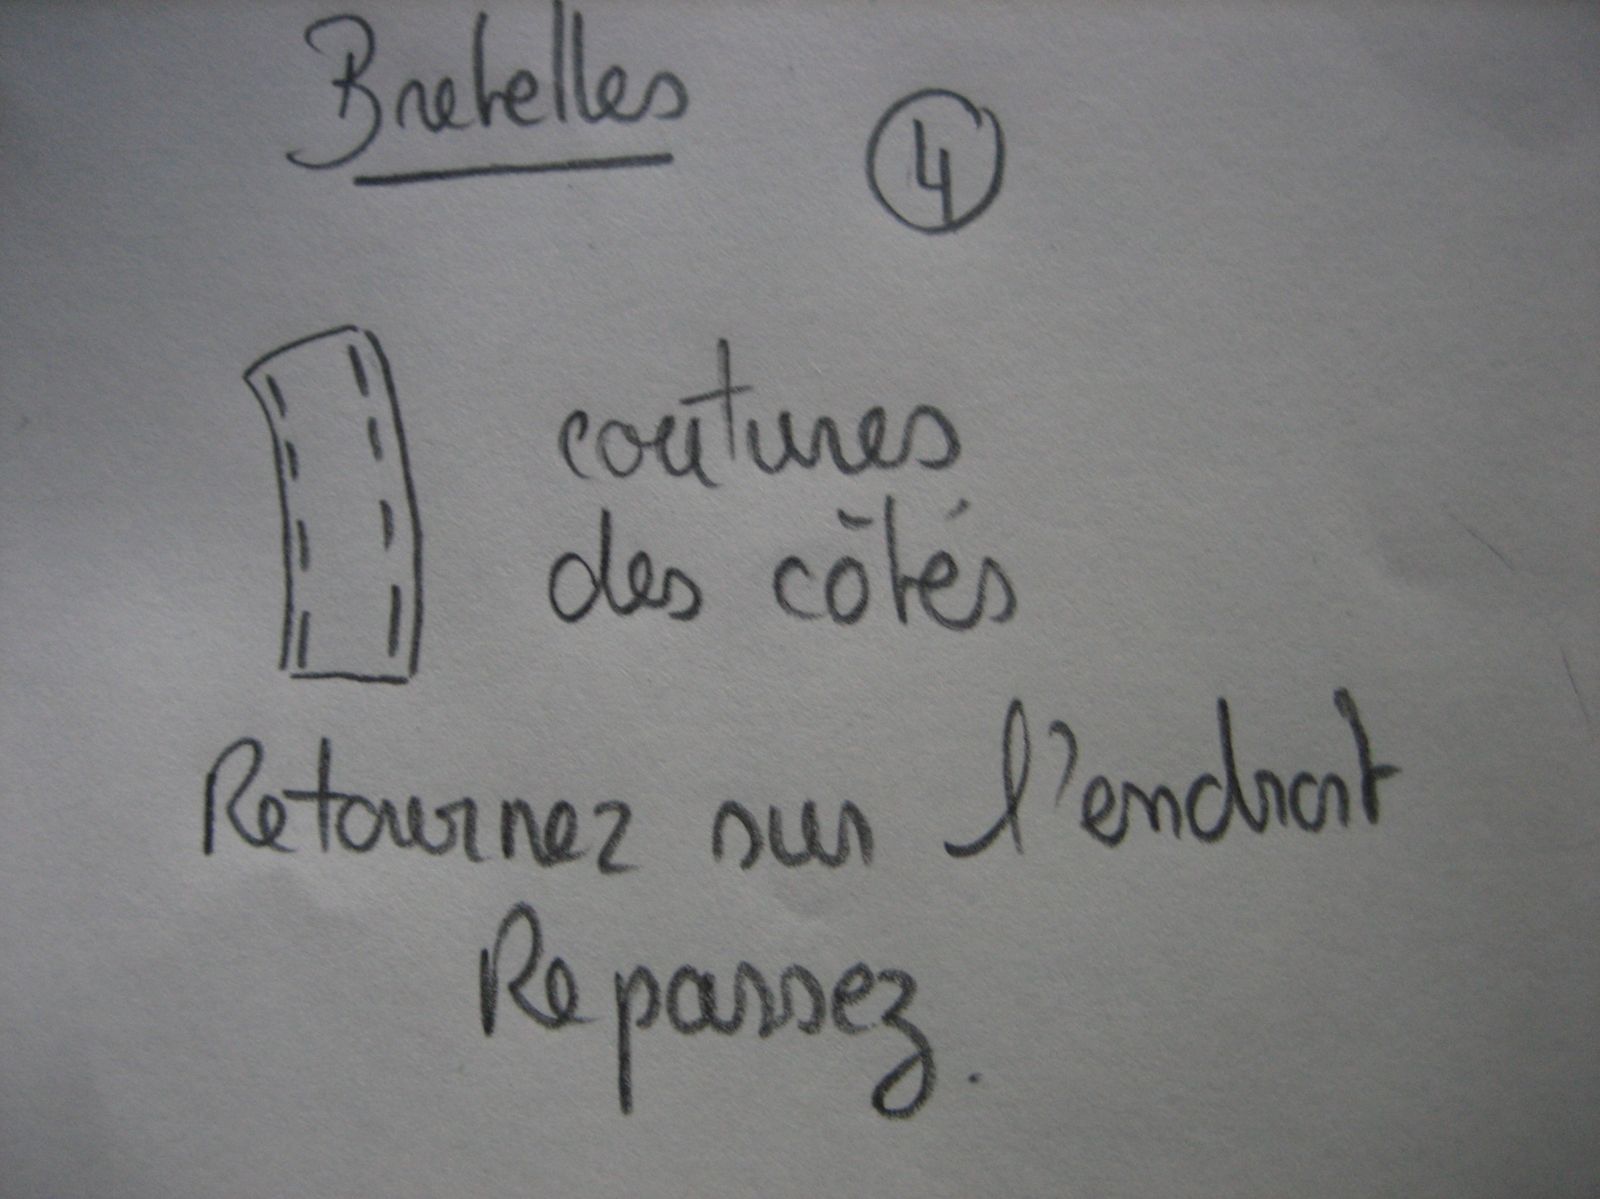 Bretelles
4
coutures
des côtés
Retournez sur l'endroit
Repassez.